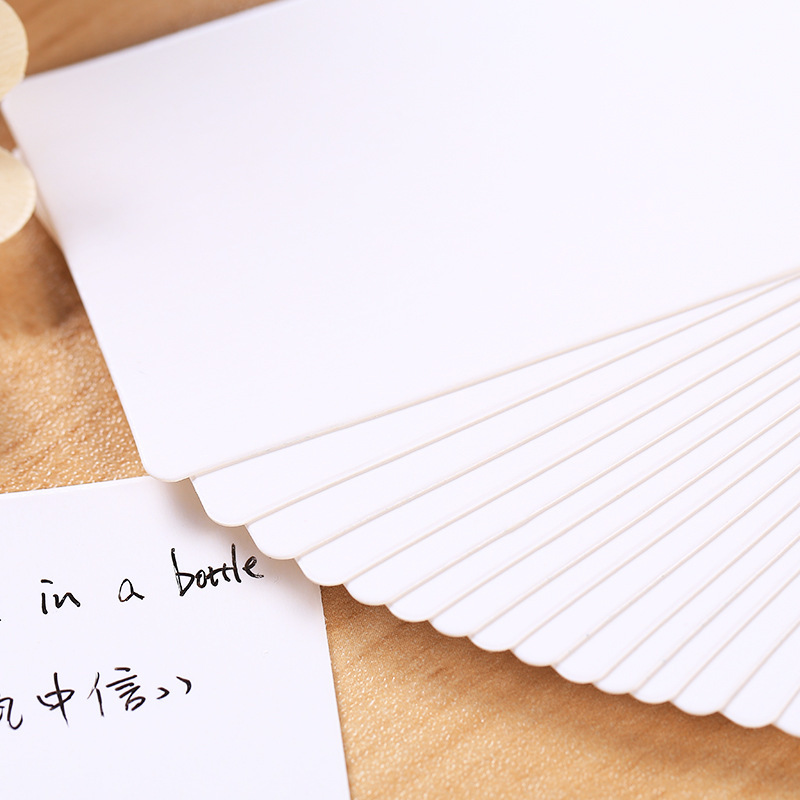 in a bottle
中信》